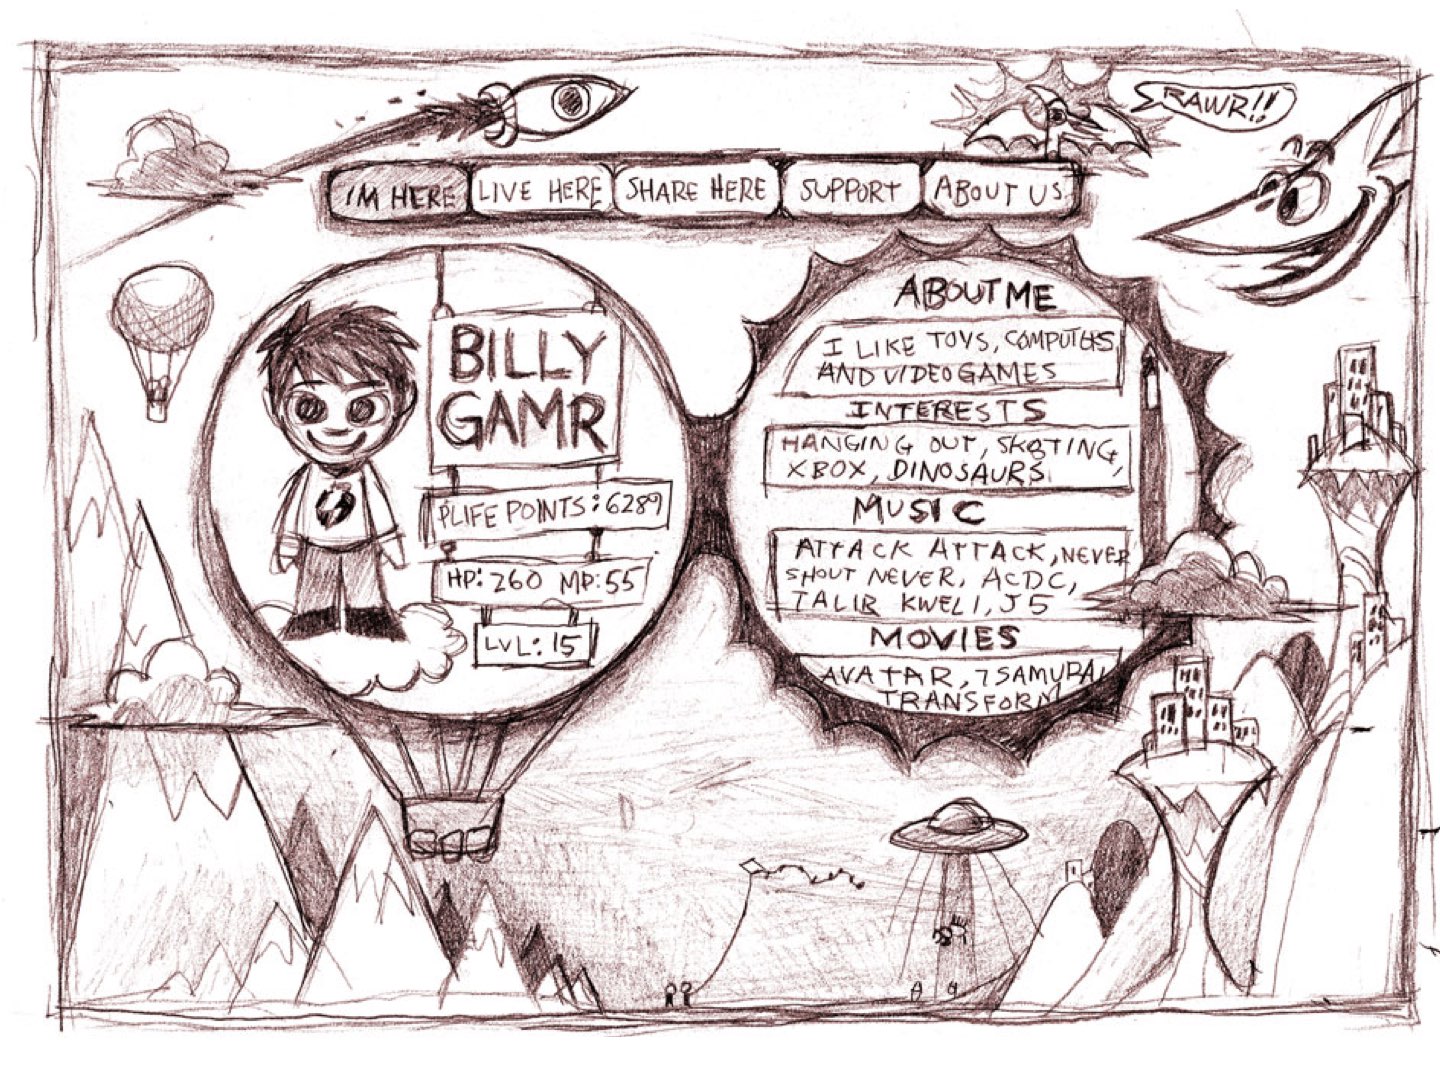 RAWR!!
I'M HERE
LIVE HERE
SHARE HERE
SUPPORT
ABOUT US
BILLY
GAMR
PLIFE POINTS: 6289
HP: 260 MP: 55
LVL: 15
ABOUT ME
I LIKE TOYS, COMPUTERS
AND VIDEOGAMES
INTERESTS
HANGING OUT, SKATING,
XBOX, DINOSAURS
MUSIC
ATTACK ATTACK, NEVER
SHOUT NEVER, ACDC,
TALIB KWELI, J5
MOVIES
AVATAR, 7 SAMURAI
TRANSFORM